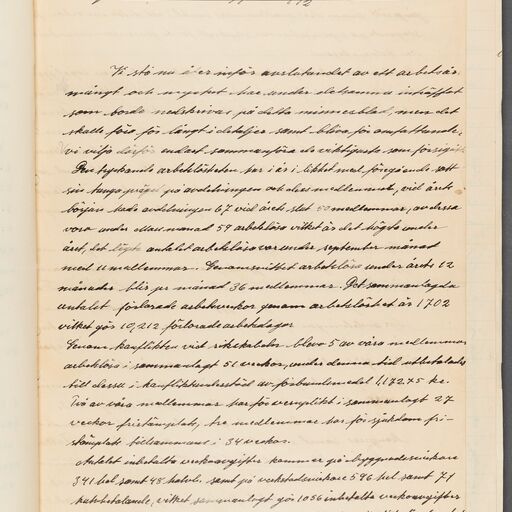 Vi stå nu i er inför avslutandet av ett arbetsår.
mångt och mycket har under detsamma inträffat
som borde nedskrivas på detta minnesblad, men det
skall föra för långt i detaljer samt bliva för omfattande,
vi vilja därför endast sammanföra de viktigaste som försigått
Den tryckande arbetslösheten har i år i likhet med föregående satt
sin tunga prägel på avdelningen och dess medlemmar, vid årets
början hade avdelningen 67 vid årets slut medlemmar, av dessa
voro under Mars månad 59 arbetslösa vilket är det högsta under
året, det lägsta antalet arbetslösa var under september månad
med 11 medlemmar. Genomsnittet arbetslösa under årets 12
månader blir pr månad 36 medlemmar. Det sammanlagda
antalet förlorade arbetsveckor genom arbetslöshet är 1702
vilket gör 10,212 förlorade arbetsdagar
Genom konflikten vid rökkanaler blevo 5 av våra medlemmar
arbetslösa i sammanlagt 51 veckor, under denna tid utbetalades
till dessa i konfliktunderstöd av förbundsmedel 1,172.75 kr.
Två av våra medlemmar har för vernplikt i sammanlagt 27
veckor fristämplats, tre medlemmar har för sjukdom fri-
stämplats tillsammans i 34 veckor.
Antalet inbetalta veckoavgifter kommer på byggnadssnickare
341 hel samt 48 halv. samt på verkstadssnickare 596 hel samt 71
halvbetalande, vilket sammanlagt gör 1056 inbetalta veckoavgifter